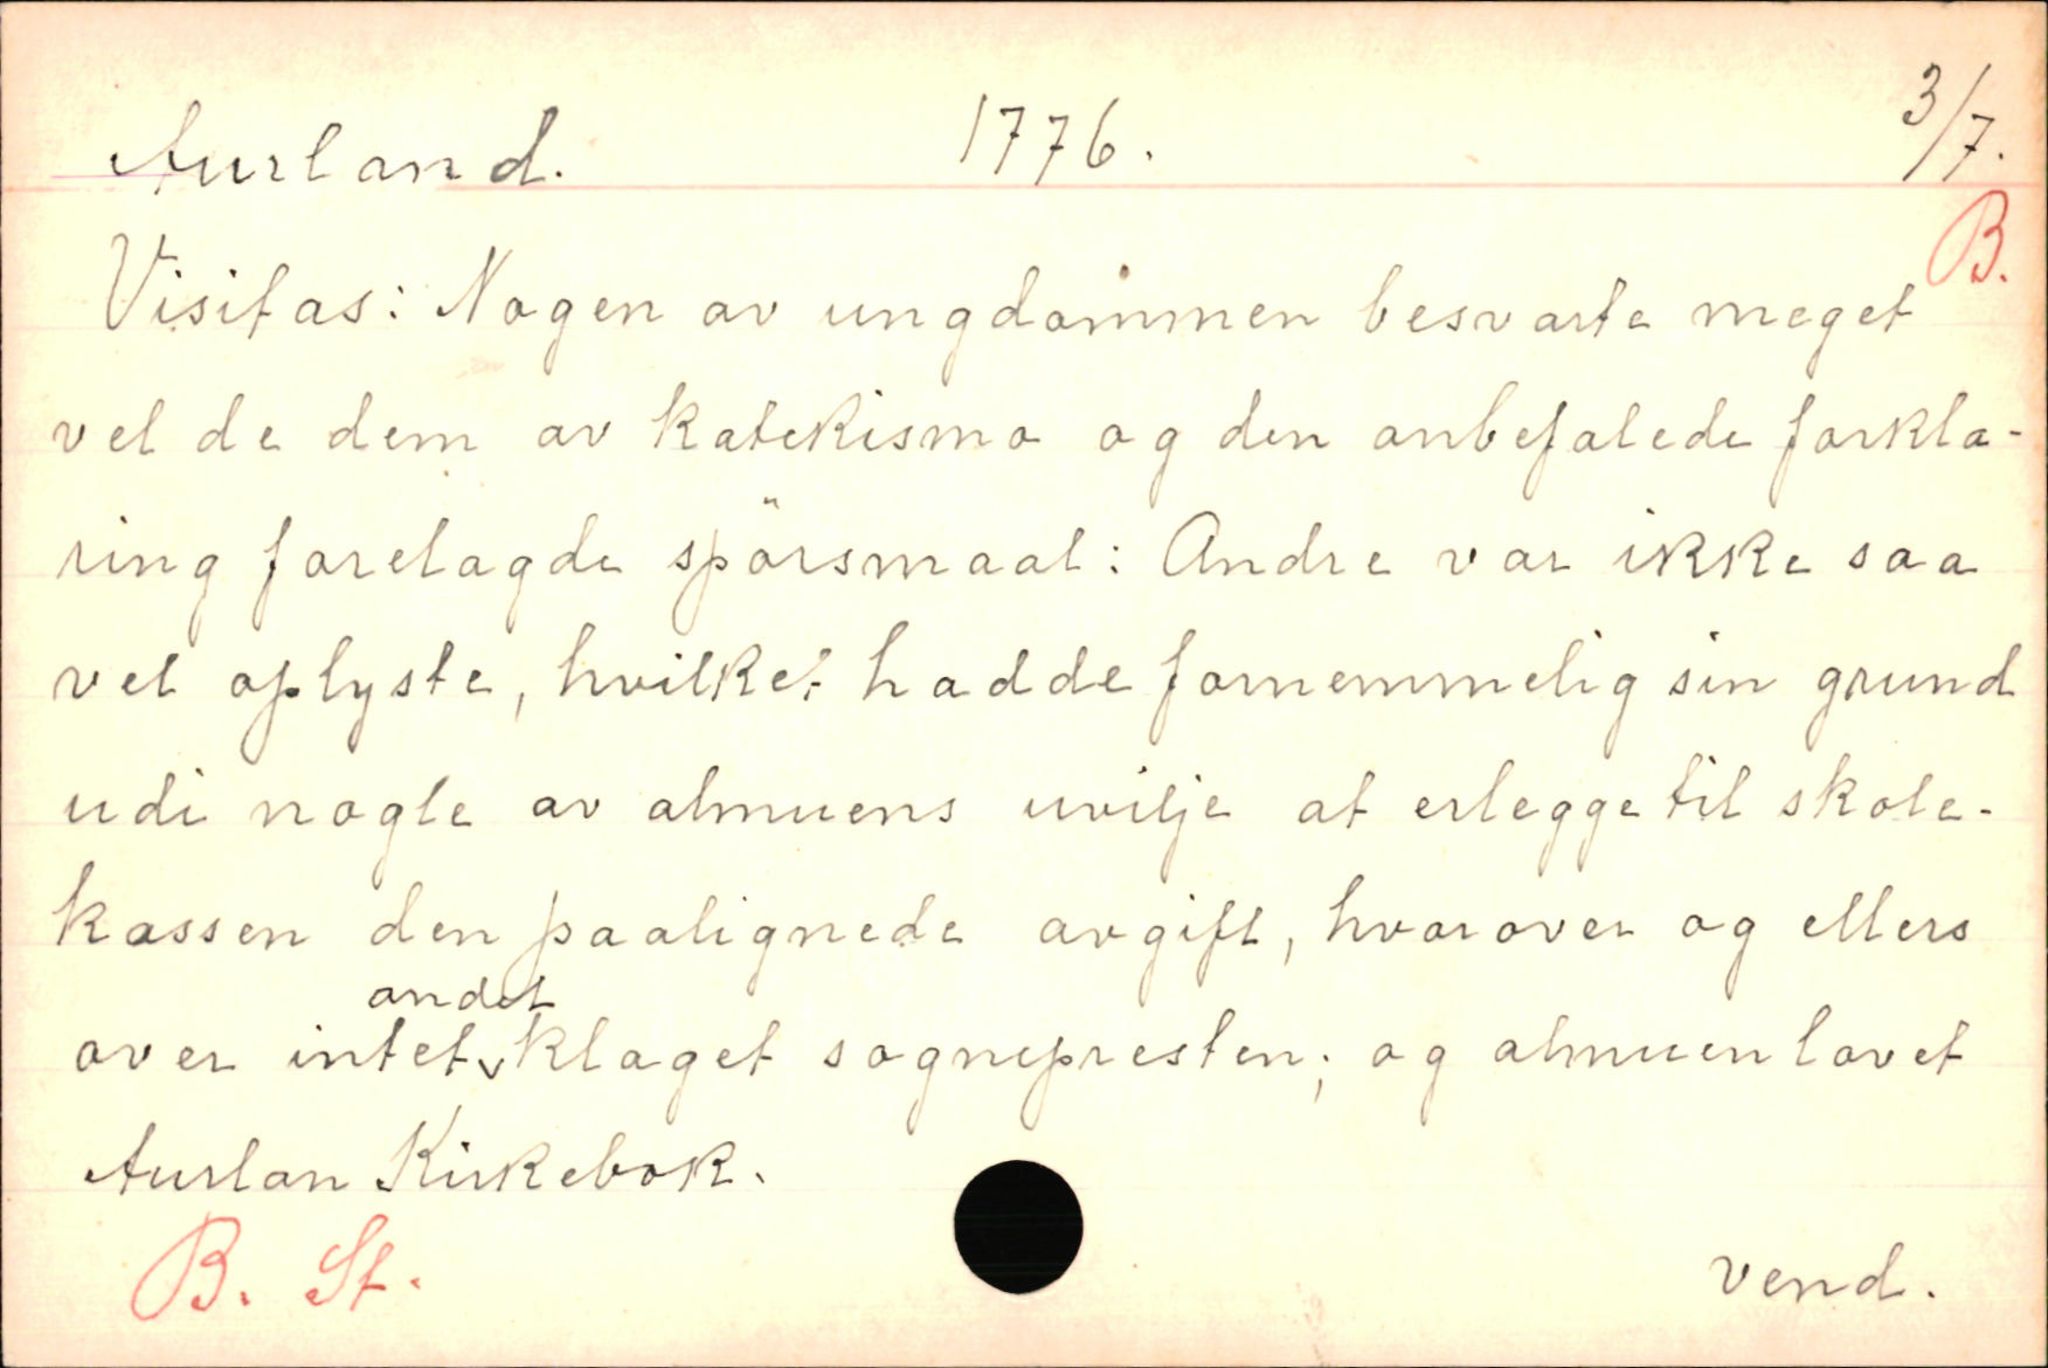 Aurland. 1776. 3/7.
B.
Visitas: Nogen av ungdommen besvarte meget
vel de dem av katekismo og den anbefalede forkla-
ring forelagde spörsmaal: Andre var ikke saa
vel oplyste, hvilket hadde fornemmelig sin grund
udi nogle av almuens uvilje at erlegge til skole-
kassen den paalignede avgift, hvorover og ellers
over intet andet klaget sognepresten; og almuen lovet
Aurlan Kirkebok.
B. St.
vend.